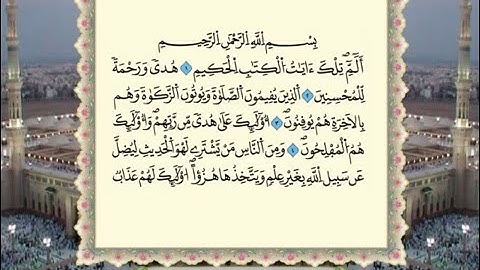 بِسْمِ اللَّهِ الرَّحْمَٰنِ الرَّحِيمِ
الٓمٓ تِلْكَ ءَايَٰتُ الْكِتَٰبِ الْحَكِيمِ ١ هُدًى وَرَحْمَةً
لِّلْمُحْسِنِينَ ٢ الَّذِينَ يُقِيمُونَ الصَّلَوٰةَ وَيُوتُونَ الزَّكَوٰةَ وَهُم
بِالَاخِرَةِ هُمْ يُوقِنُونَ ٣ أُوْلَٰٓئِكَ عَلَىٰ هُدًى مِّن رَّبِّهِمْ وَأُوْلَٰٓئِكَ
هُمُ الْمُفْلِحُونَ ٤ وَمِنَ النَّاسِ مَنْ يَّشْتَرِے لَهْوَ الْحَدِيثِ لِيُضِلَّ
عَن سَبِيلِ اللَّهِ بِغَيْرِ عِلْمٍ وَيَتَّخِذُهَا هُزُؤًا أُوْلَٰٓئِكَ لَهُمْ عَذَابٌ